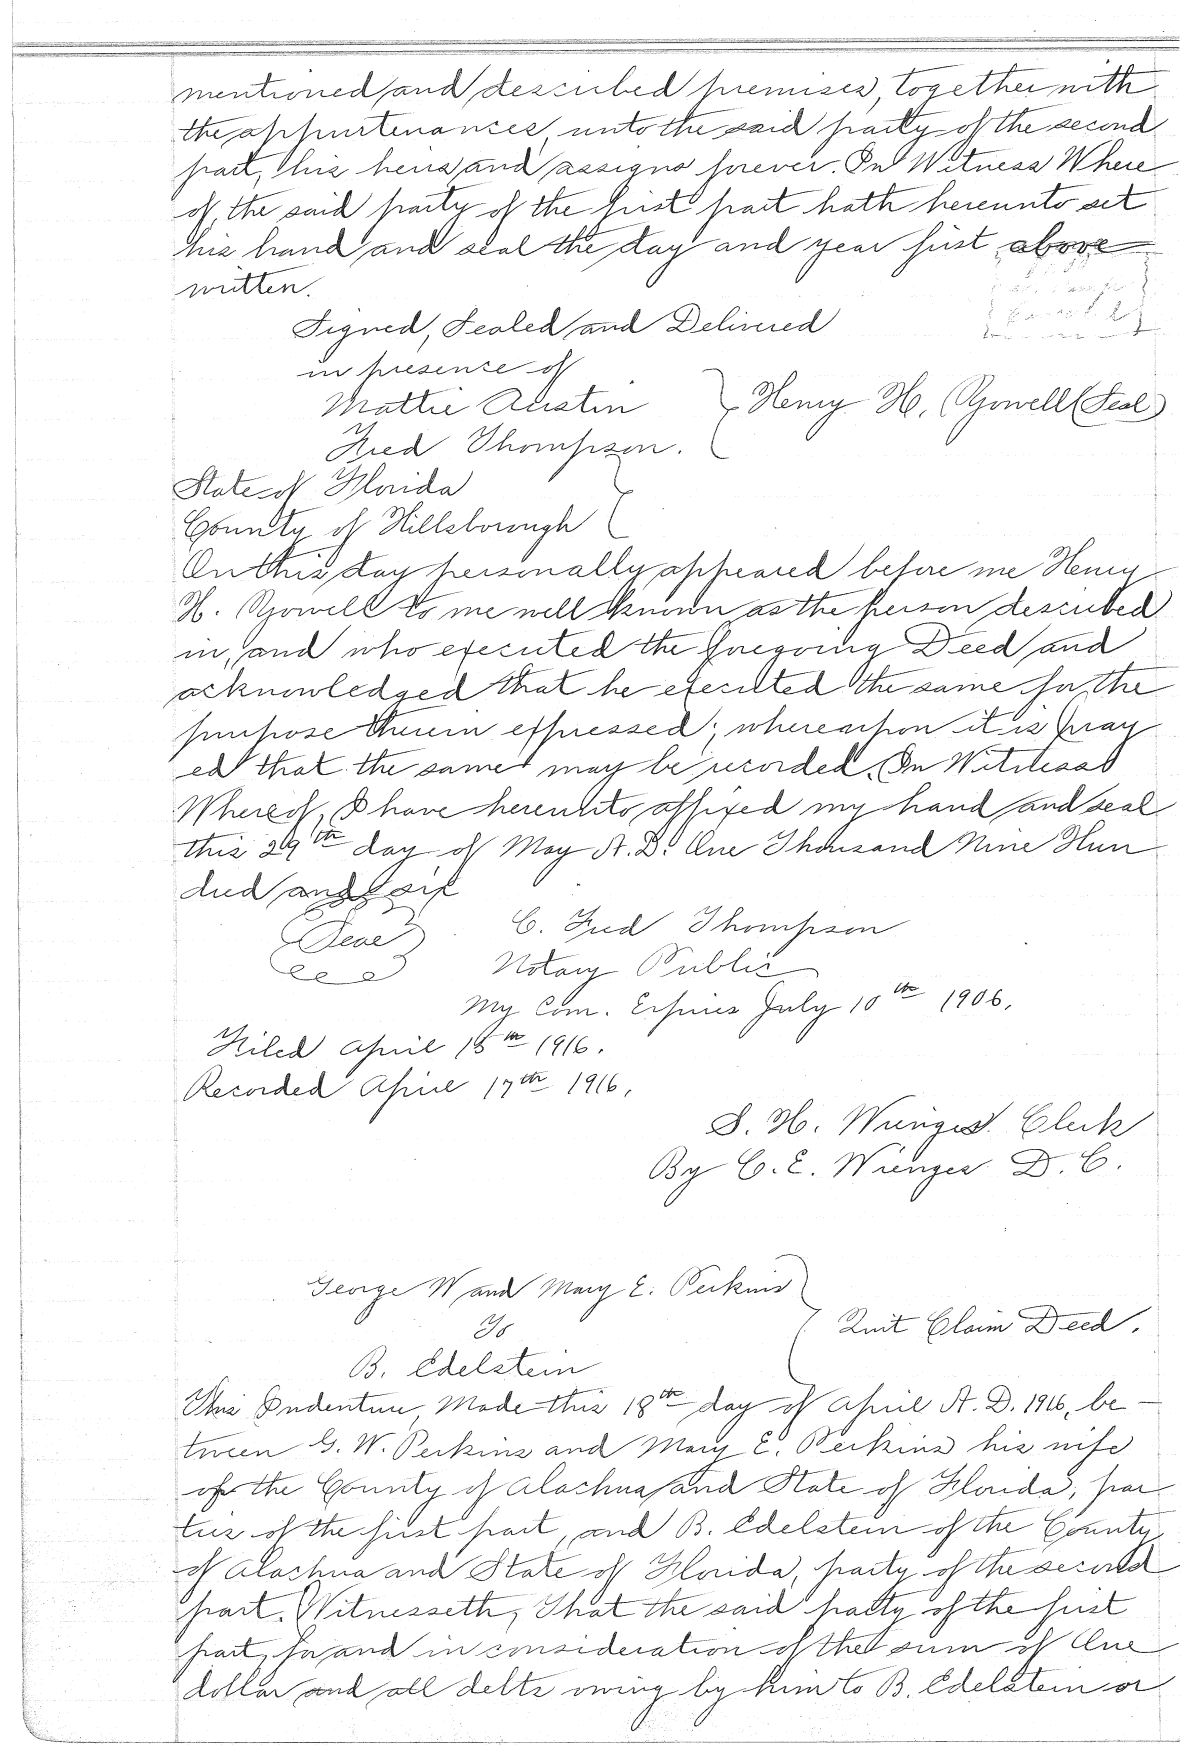 mentioned and described premises, together with
the appurtenances, unto the said party of the second
part, his heirs and assigns forever. In Witness Where
of, the said party of the first part hath hereunto set
his hand and seal the day and year first above
written.
Signed, Sealed and Delivered
in presence of
Mattie Austin
Henry H. Rowell (Seal)
Fred Thompson.
State of Florida
County of Hillsborough
On this day personally appeared before me Henry
H. Rowell to me well known as the person described
in, and who executed the foregoing Deed and
acknowledged that he executed the same for the
purpose therein expressed; whereupon it is pray
ed that the same may be recorded. In Witness
Whereof, I have hereunto affixed my hand and seal
this 29th day of May A.D. One Thousand Nine Hun
dred and six
Seal
C. Fred Thompson
Notary Public
My Com. Expires July 10th 1906.
Filed April 15th 1916.
Recorded April 17th 1916.
S. H. Wienges Clerk
By C. E. Wienges D. C.
George W and Mary E. Perkins
To
Quit Claim Deed.
B. Edelstein
This Indenture, Made this 18th day of April A. D. 1916, be-
tween G. W. Perkins and Mary E. Perkins his wife
of the County of Alachua and State of Florida, par
ties of the first part, and B. Edelstein of the County
of Alachua and State of Florida, party of the second
part. Witnesseth, That the said party of the first
part, for and in consideration of the sum of One
dollar and all debts owing by him to B. Edelstein or